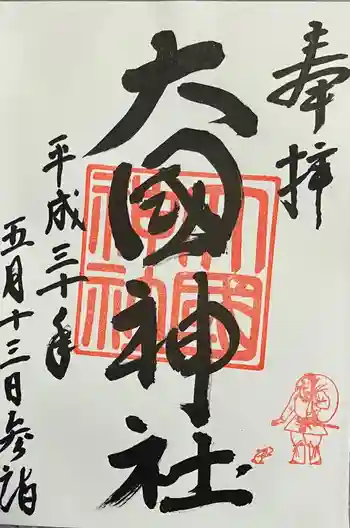 奉拝
大國神社
大國
神社
平成三十年
五月十三日参詣